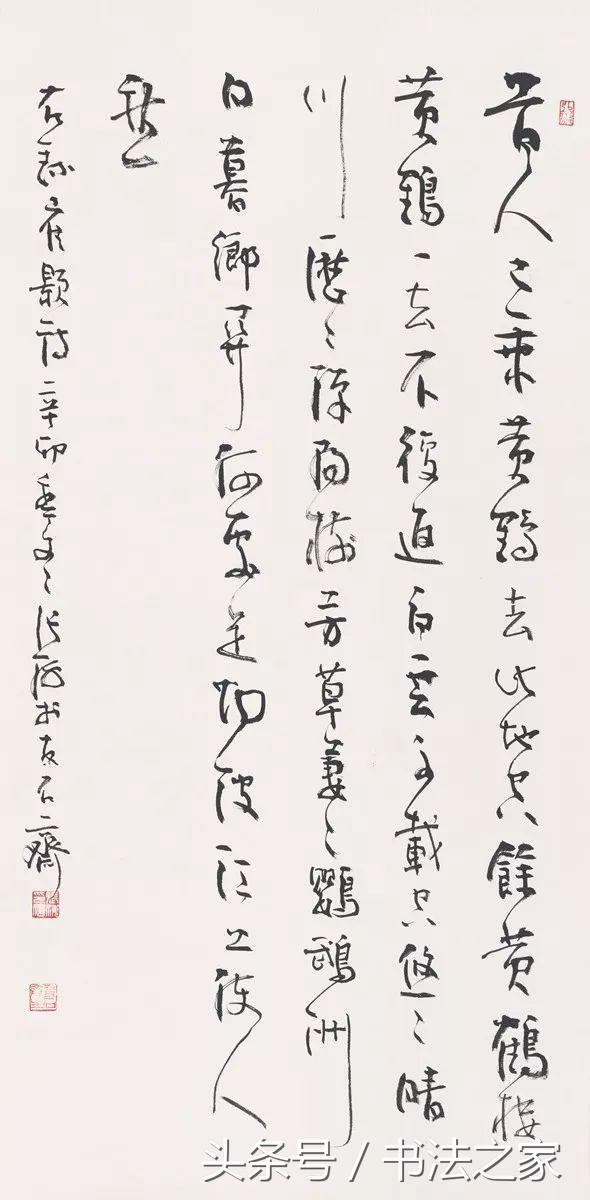 昔人已乘黄鶴去此地空餘黄鶴樓
黄鶴一去不復返白雲千載空悠〻晴
川歷〻漢陽樹芳草萋〻鸚鵡洲
日暮鄉關何處是烟波江上使人
愁
右錄崔顥詩辛卯 石齋
头条号 / 书法之家